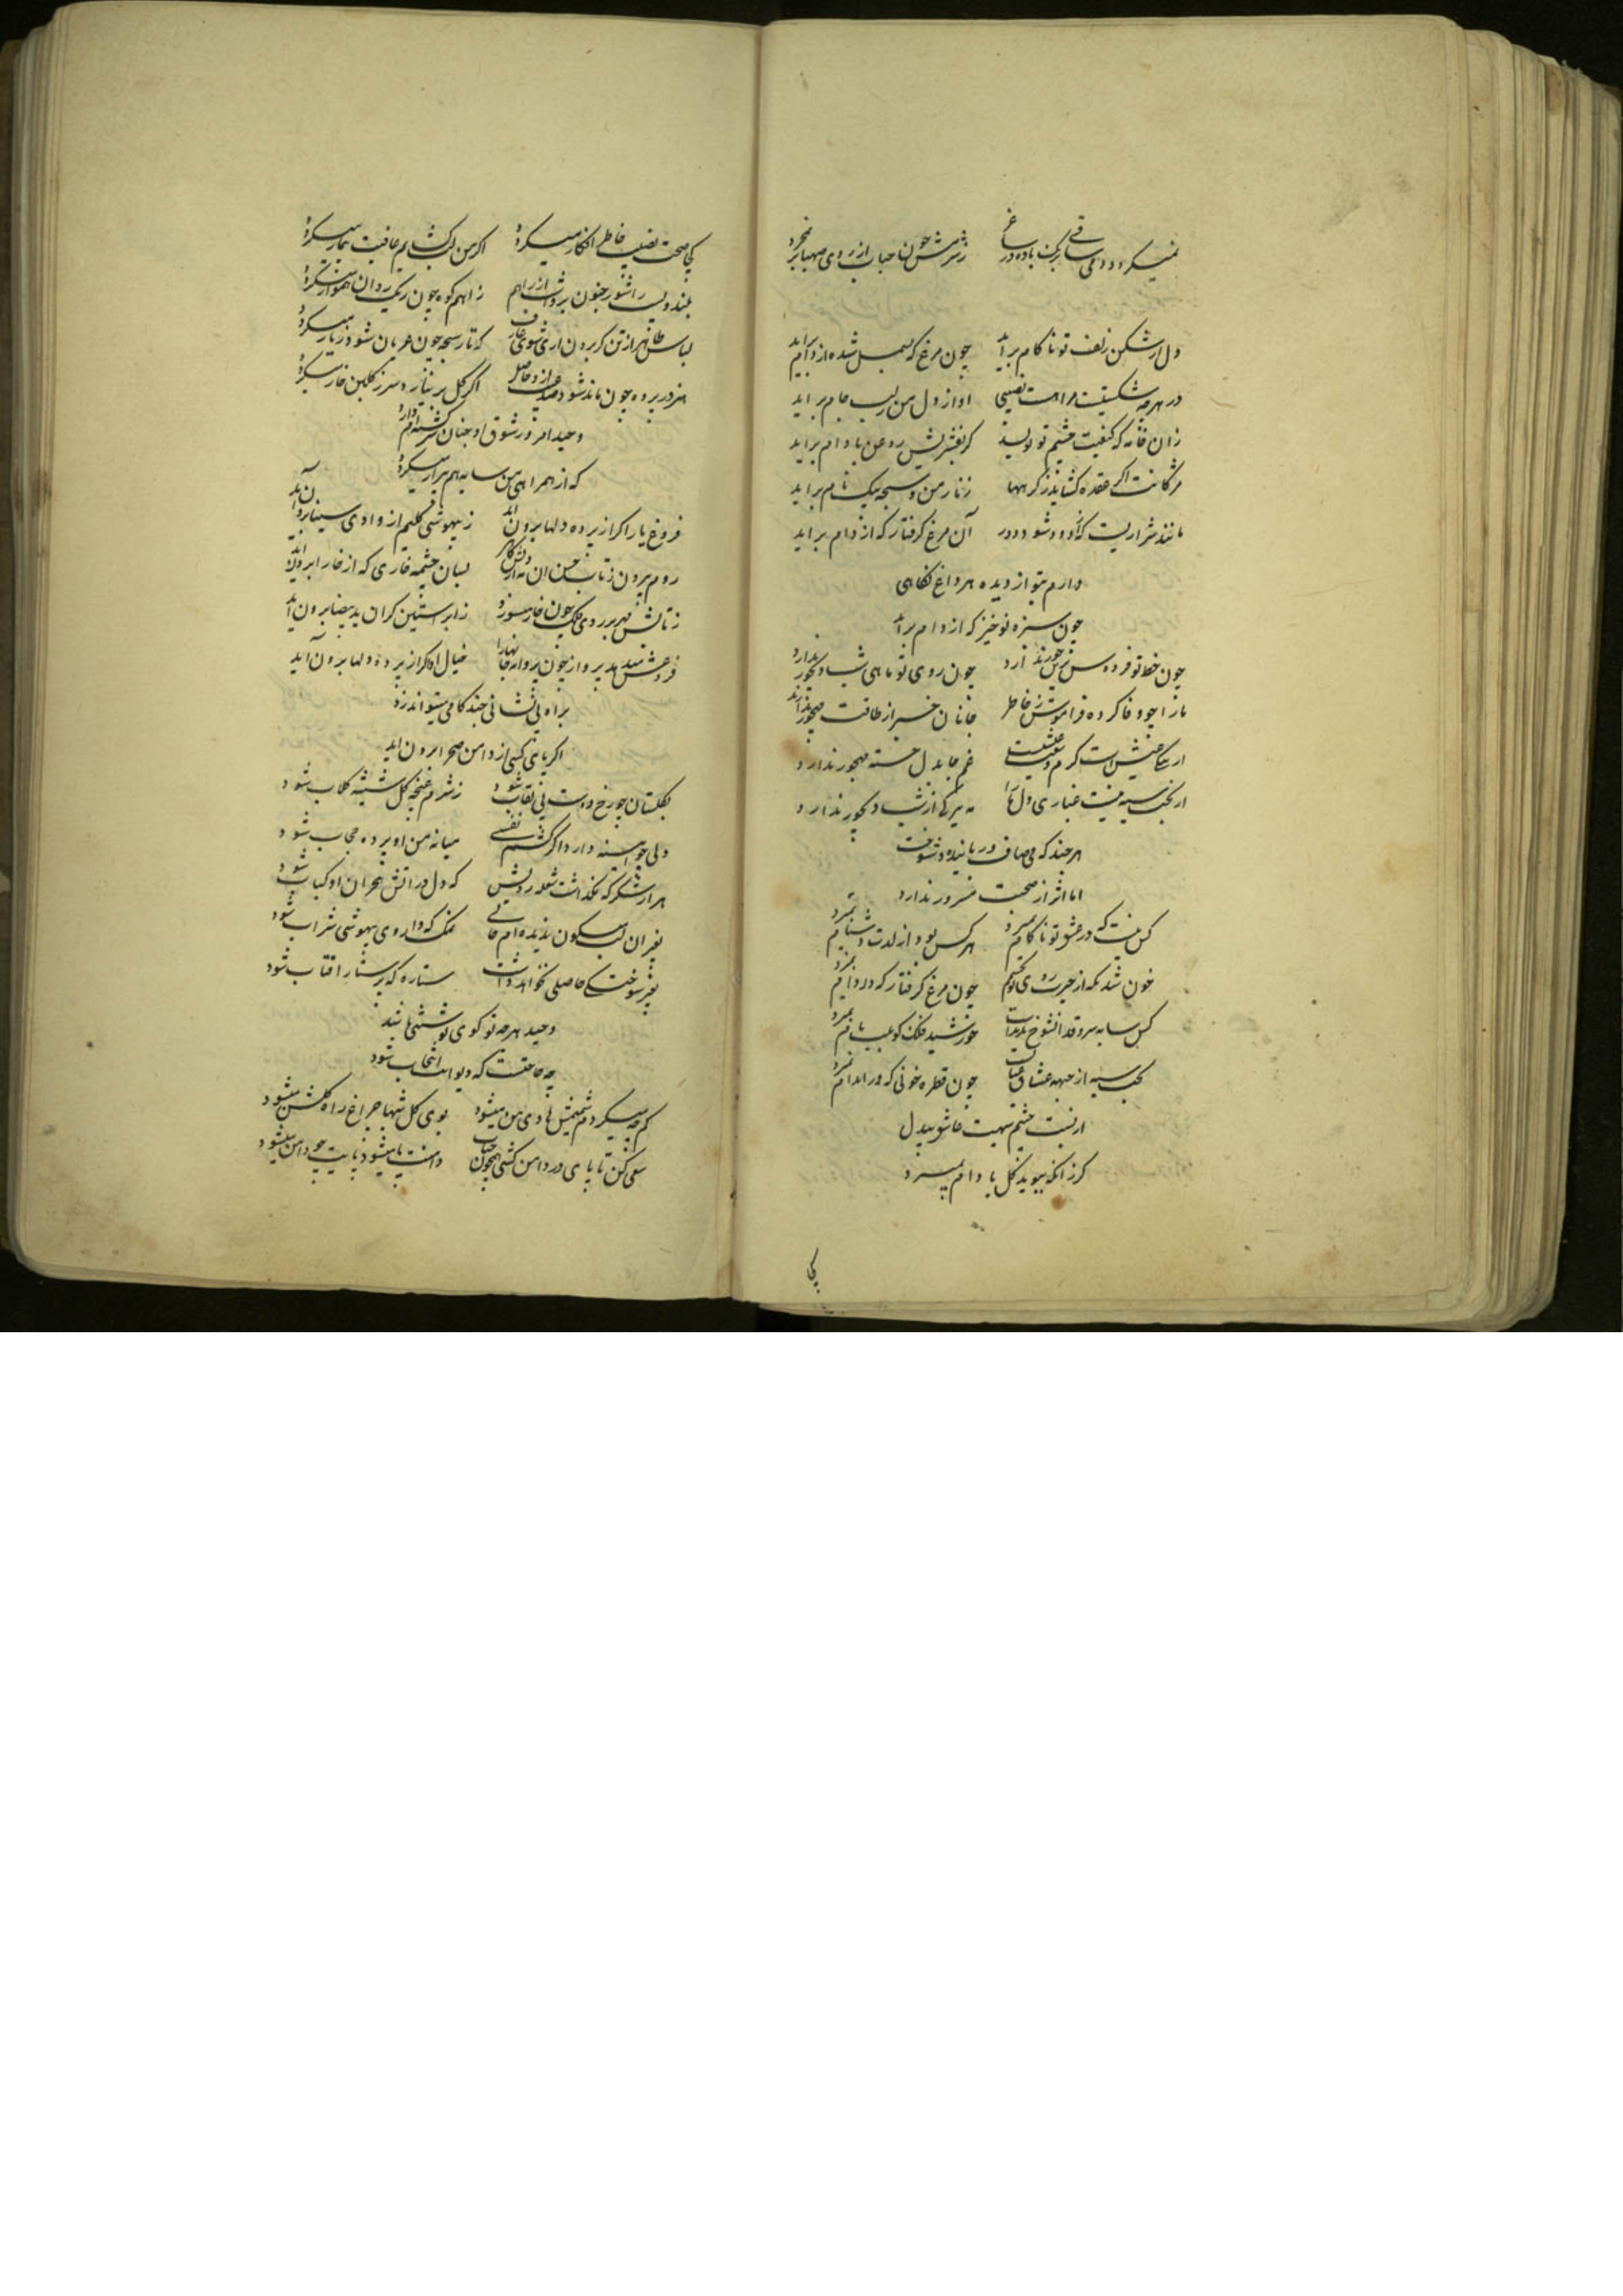 نمیکردد دمی ساقی بکف باده در ساغر زشرمش چون حباب از روی صهبا بر نمیخیزد
دل از شکن زلف تو ناکام براید چون مرغ که بسمل شده از دام براید
در هر چه شکستیست مرا هست نصیبی اواز دل من ز لب جام براید
زان خامه که کیفیت چشم تو نویسد کر بفشریش روغن بادام براید
مژکانت اکر عقده کشاید ز کرهها زنار من و سبحه بیک نام براید
مانند شراریست که از دود شود دور آن مرغ کرفتار که از دام براید
دارم بتو از دیده هر داغ نکاهی
چون سبزه نوخیز که از دام براید
چون خط تو فردوس ندارد چون روی تو ماهی شب دیجور ندارد
ما را چو وفا کرده فراموش ز خاطر جانان خبر از طاقت مهجور ندارد
غم جا بدل خسته مهجور ندارد
از بخت سیه نیست غباری دل ما را مه تیرکی از شب دیجور ندارد
هر چند که می صاف
اما اثر از صحبت ندارد
کس نیست که در عشق تو ناکام نمیرد هر کس بود از لذت دشنام نمیرد
خون شد نکه از حیرت روی تو بچشمم چون مرغ کرفتار که در دام نمیرد
کس سایه سرو قد انشوخ ندیدست خورشید فلک کو بلب بام نمیرد
بخت سیه از جبهه عشاق چون قطره خونی که در اندام نمیرد
از نسبت چشم سیهت عاشق بیدل
کر زانکه ببوید کل بادام نمیرد
کی
کی صحت نصیب خاطر افکار میکردد اکر من لب کشایم عافیت بیمار میکردد
بلند و پست را شور جنون برداشت از راهم ز اهم کوه چون ریک روان هموار میکردد
لباس ظاهر از تن کر برون اری شوی عارف که تار سبحه چون عریان شود زنار میکردد
هنر در پرده چون ماند شود اکر کل بر نیارد سر ز کلبن خار میکردد
وحید امروز شوق او چنان سرکشته ام دارد
که از همراهی من سایه هم بیزار میکردد
فروغ یار اکر از پرده دلها برون اید ز بیهوشی کلیم از وادی سینا برون آید
روم بیرون ز تاب حسن ان بسان چشمه خاری که از خارا برون اید
ز تابش مهر بر روی فلک چون خار میسوزد ز ابر استین کر ان ید بیضا برون اید
فروغش میدهد پرواز چون پروانه جانها را خیال او اکر از پرده دلها برون آید
براه بی نشانی چند کامی میتواند زد
اکر پای کسی از دامن صحرا برون اید
بکلستان چو رخ دوست بی نقاب شود ز شرم غنچه کل شیشه کلاب شود
دلی چو اینه دارد اکر کشم نفسی میانه من او پرده حجاب شود
هزار شکر که نکذاشت شعله رویش که دل در اتش هجران او کباب شود
بغیر ان لب میکون ندیده ام جائی نمک که داروی بیهوشی شراب شود
بغیر سوختکی حاصلی نخواهد داشت ستاره که پرستار افتاب شود
وحید هر چه تو کوی نوشتنی باشد
چه حاجتست که دیوانت انتخاب شود
کر چه میکردم شمیمش هادی من میشود بوی کل شبها چراغ راه کلشن میشود
سعی کن تا پای در دامن کشی همچون حباب دامنت پا میشود پایت چو دامن میشود